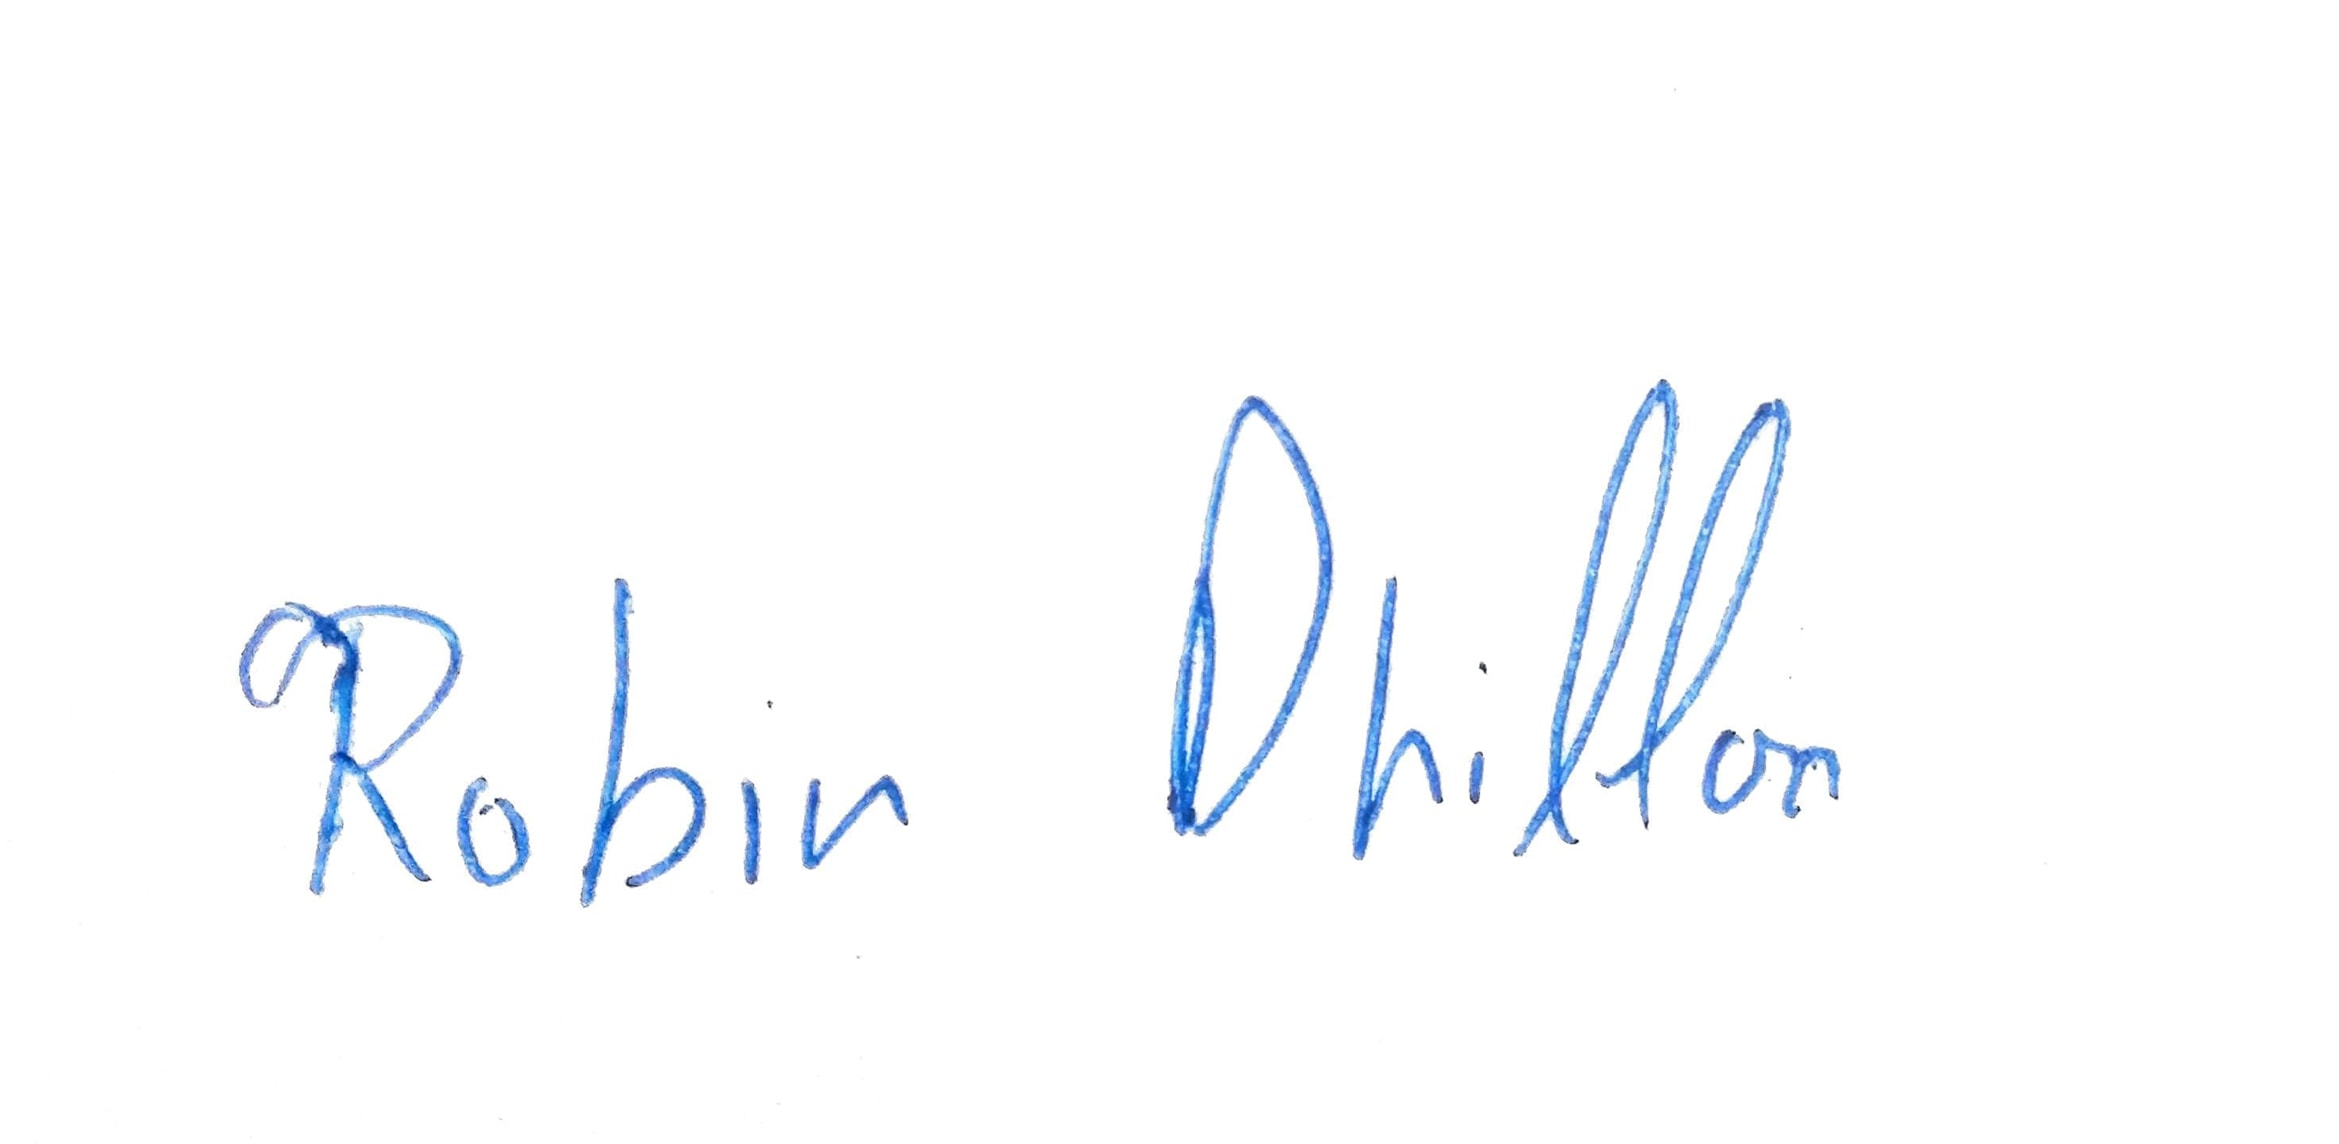 Robin Dhillon